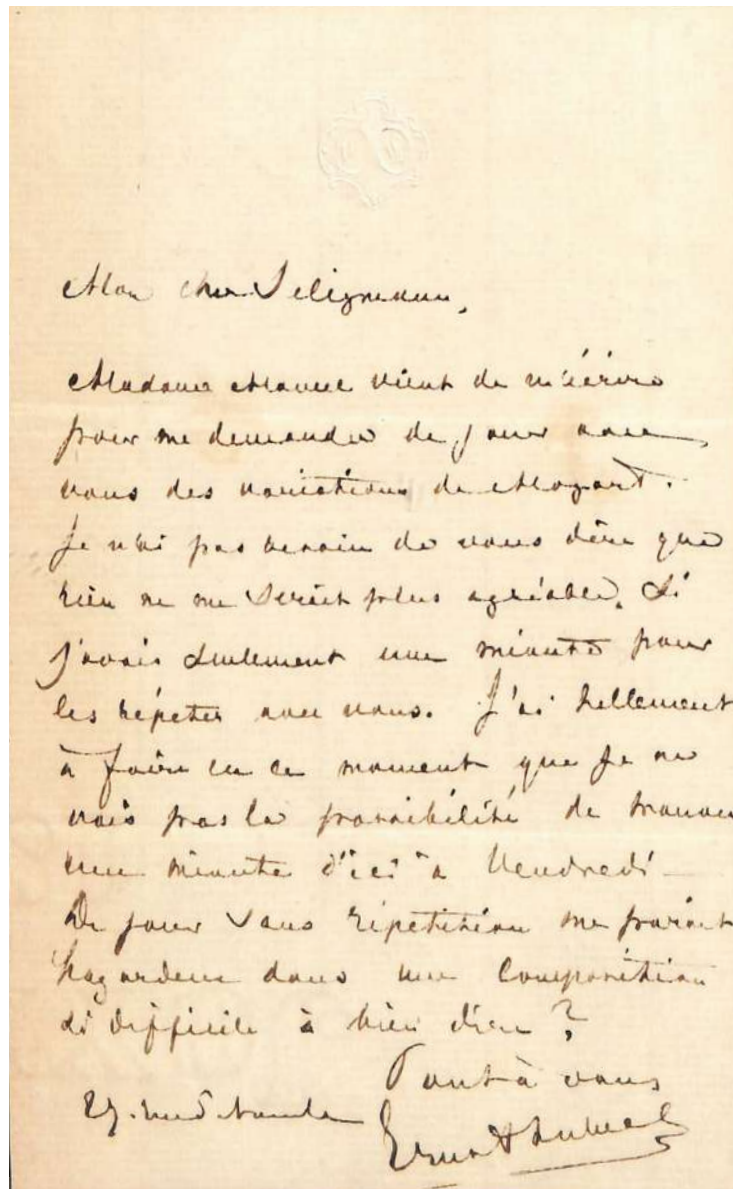 Mon cher Seligmann,
Madame Manuel vient de m'écrire
pour me demander de jouer avec
vous des variations de Mozart.
Je n'ai pas besoin de vous dire que
rien ne me serait plus agréable. Si
j'avais seulement une minute pour
les répéter avec vous. J'ai tellement
à faire en ce moment que je ne
vois pas la possibilité de trouver
une minute d'ici à Vendredi –
De jouer sans répétition me paraît
hazardeux dans une composition
si difficile à bien dire ?
Tout à vous